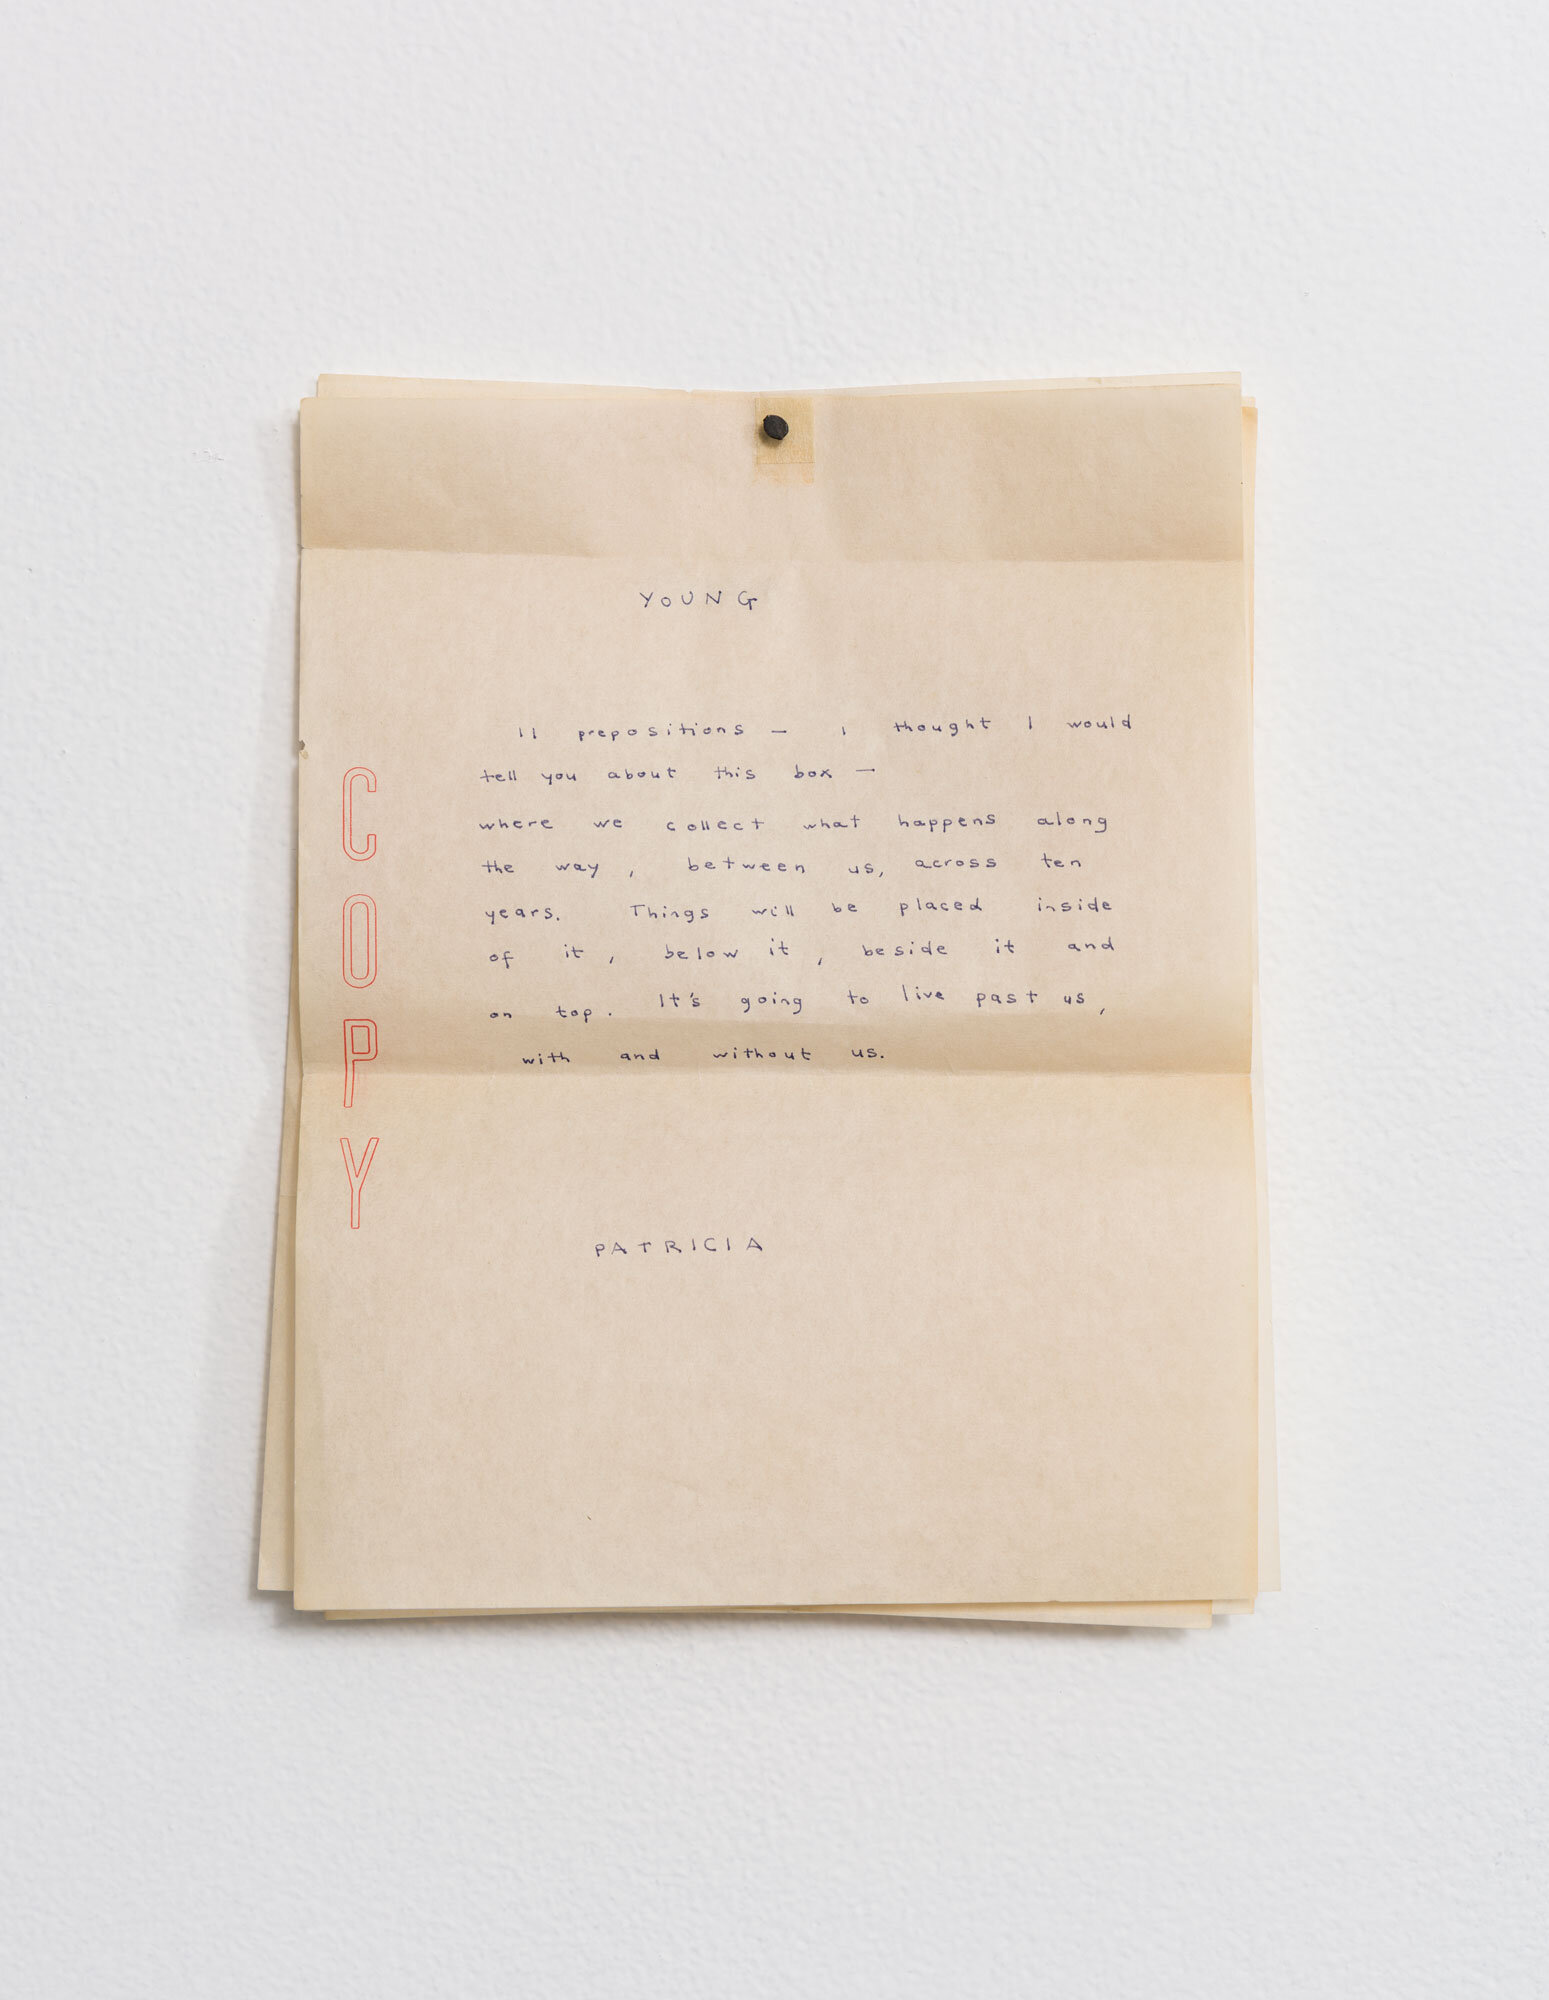 YOUNG
11 prepositions — i thought I would
tell you about this box —
where we collect what happens along
the way, between us, across ten
years. Things will be placed inside
of it, below it, beside it and
on top. It's going to live past us,
with and without us.
PATRICIA
COPY